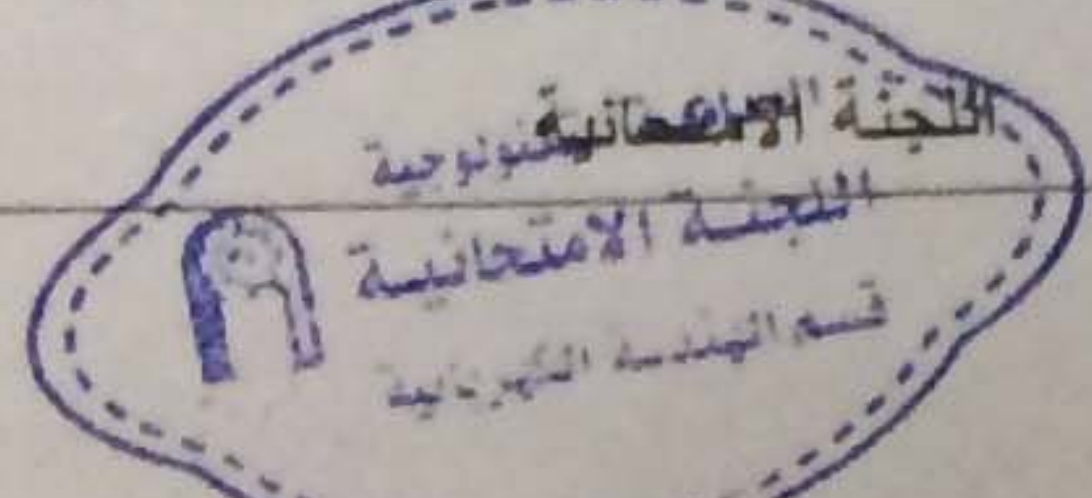 اللجنة الامتحانية
التكنولوجية
اللجنة الامتحانية
قسم الهندسة الكهربائية